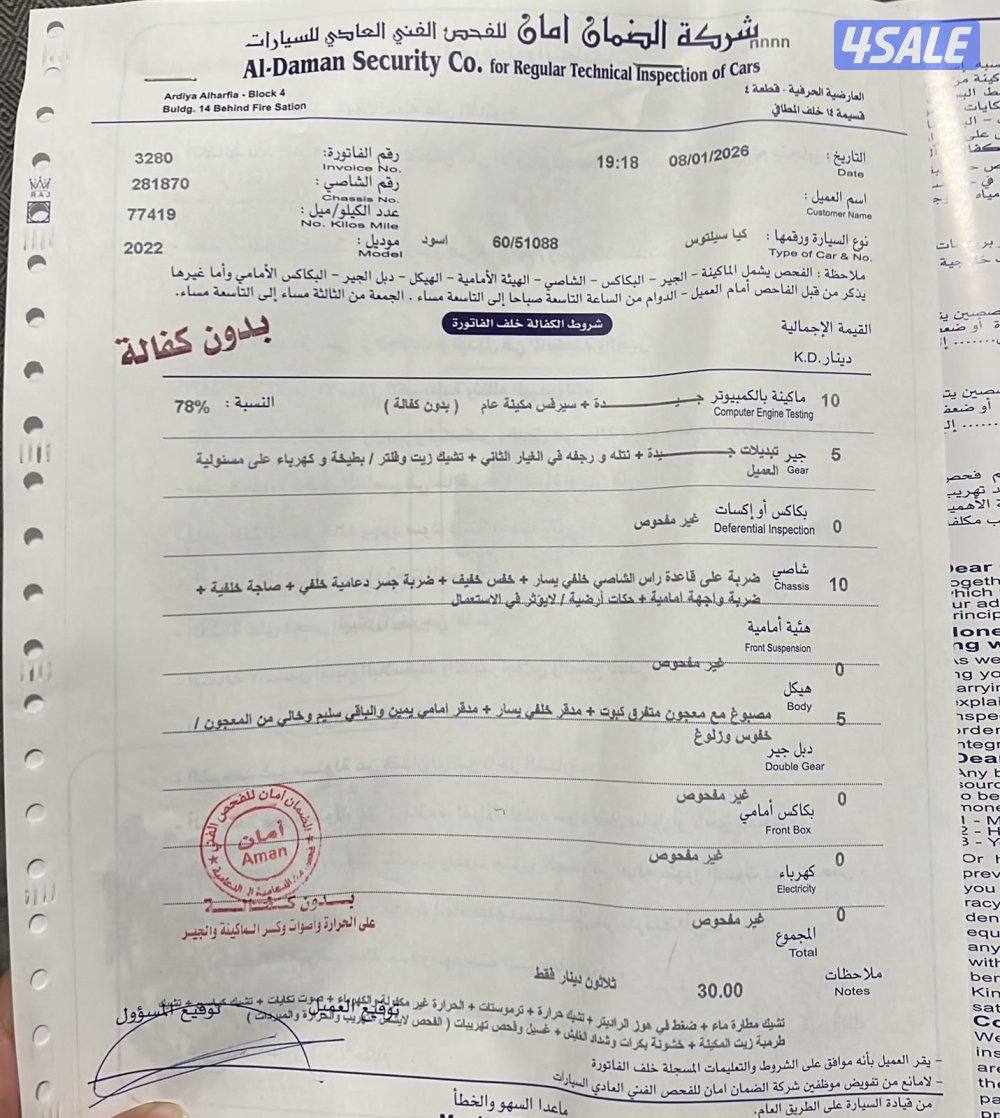 4SALE
شركة الضمان امان للفحص الفني العادي للسيارات nnnn
Al-Daman Security Co. for Regular Technical Inspection of Cars
Ardiya Alharfia - Block 4
Buldg. 14 Behind Fire Sation
العارضية الحرفية - قطعة ٤
قسيمة ١٤ خلف المطافي
التاريخ :
Date
08/01/2026 19:18
رقم الفاتورة:
Invoice No.
3280
اسم العميل :
Customer Name
رقم الشاصي :
Chassis No.
281870
عدد الكيلو/ميل :
No. Kilos Mile
77419
نوع السيارة ورقمها : كيا سيلتوس 60/51088 اسود
Type of Car & No.
موديل : 2022
Model
ملاحظة : الفحص يشمل الماكينة - الجير - البكاكس - الشاصي - الهيئة الأمامية - الهيكل - دبل الجير - البكاكس الأمامي وأما غيرها
يذكر من قبل الفاحص أمام العميل - الدوام من الساعة التاسعة صباحا إلى التاسعة مساء . الجمعة من الثالثة مساء إلى التاسعة مساء.
شروط الكفالة خلف الفاتورة
القيمة الإجمالية
دينار .K.D
بدون كفالة
10 ماكينة بالكمبيوتر جيـــدة + سيرفس مكينة عام ( بدون كفالة ) النسبة : 78%
Computer Engine Testing
5 جير تبديلات جيـــدة + نتله و رجفه في الغيار الثاني + تشيك زيت وفلتر / بطيخة و كهرباء على مسئولية
Gear العميل
0 بكاكس أو إكسات غير مفحوص
Deferential Inspection
10 شاصي ضربة على قاعدة راس الشاصي خلفي يسار + خفس خفيف + ضربة جسر دعامية خلفي + صاجة خلفية +
Chassis ضربة واجهة امامية + حكات أرضية / لايؤثر في الاستعمال
هئية أمامية
Front Suspension
0 غير مفحوص
هيكل
Body
5 مصبوغ مع معجون متفرق كبوت + مدقر خلفي يسار + مدقر امامي يمين والباقي سليم وخالي من المعجون /
خفوس وزلوغ
دبل جير
Double Gear
0 غير مفحوص
بكاكس أمامي
Front Box
0 غير مفحوص
كهرباء
Electricity
0 غير مفحوص
المجموع
Total
الضمان امان للفحص الفني
أمان
Aman
بــدون كـفـالــة
على الحرارة وأصوات وكسر الماكينة والجير
ثلاثون دينار فقط 30.00
ملاحظات
Notes
تشيك مطارة ماء + ضغط في هوز الراديتر + تشيك حرارة + ترموستات + الحرارة غير مكفولة والكهرباء + صوت تكايات + تشيك
طرمبة زيت المكينة + خشونة بكرات وشداد القايش + غسيل وفحص تهريبات ( الفحص لايشمل التهريب والحرارة والمبردات )
توقيع العميل
توقيع المسؤول
- يقر العميل بأنه موافق على الشروط والتعليمات المسجلة خلف الفاتورة
- لامانع من تفويض موظفين شركة الضمان امان للفحص الفني العادي السيارات
من قيادة السيارة على الطريق العام.
ماعدا السهو والخطأ